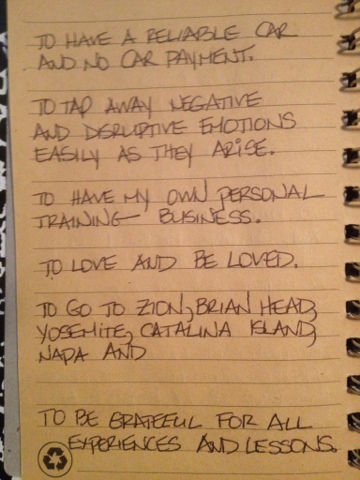 TO HAVE A RELIABLE CAR
AND NO CAR PAYMENT.
TO TAP AWAY NEGATIVE
AND DISRUPTIVE EMOTIONS
EASILY AS THEY ARISE.
TO HAVE MY OWN PERSONAL
TRAINING BUSINESS.
TO LOVE AND BE LOVED.
TO GO TO ZION, BRIAN HEAD,
YOSEMITE, CATALINA ISLAND,
NAPA AND
TO BE GRATEFUL FOR ALL
EXPERIENCES AND LESSONS.